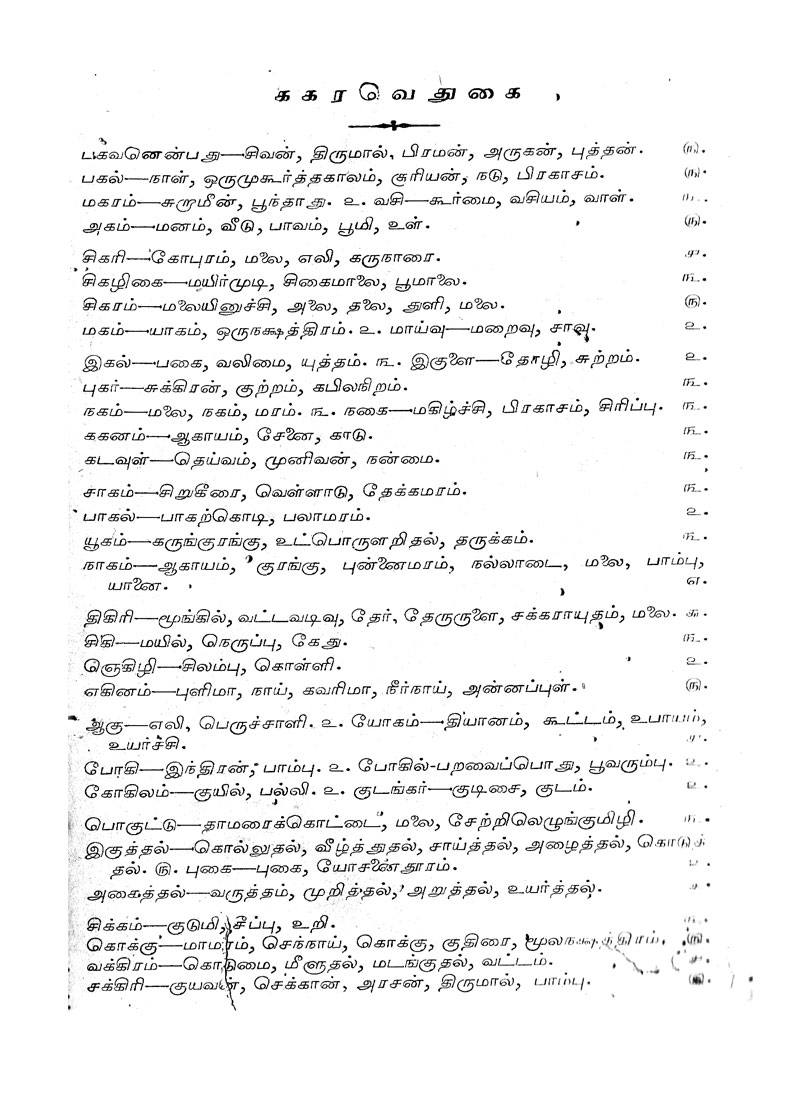 ககரவெதுகை
பகவனென்பது—சிவன், திருமால், பிரமன், அருகன், புத்தன். ௫.
பகல்—நாள், ஒருமுகூர்த்தகாலம், சூரியன், நடு, பிரகாசம். ௫.
மகரம்—சுறாமீன், பூந்தாது. ௨. வசி—கூர்மை, வசியம், வாள். ௩.
அகம்—மனம், வீடு, பாவம், பூமி, உள். ௫.
சிகரி—கோபுரம், மலை, எலி, கருநாரை. ௪.
சிகழிகை—மயிர்முடி, சிகைமாலை, பூமாலை. ௩.
சிகரம்—மலையினுச்சி, அலை, தலை, துளி, மலை. ௫.
மகம்—யாகம், ஒருநக்ஷத்திரம். ௨. மாய்வு—மறைவு, சாவு. ௨.
இகல்—பகை, வலிமை, யுத்தம். ௩. இகுளை—தோழி, சுற்றம். ௨.
புகர்—சுக்கிரன், குற்றம், கபிலநிறம். ௩.
நகம்—மலை, நகம், மரம். ௩. நகை—மகிழ்ச்சி, பிரகாசம், சிரிப்பு. ௩.
ககனம்—ஆகாயம், சேனை, காடு. ௩.
கடவுள்—தெய்வம், முனிவன், நன்மை. ௩.
சாகம்—சிறுகீரை, வெள்ளாடு, தேக்கமரம். ௩.
பாகல்—பாகற்கொடி, பலாமரம். ௨.
யூகம்—கருங்குரங்கு, உட்பொருளறிதல், தருக்கம். ௩.
நாகம்—ஆகாயம், குரங்கு, புன்னைமரம், நல்லாடை, மலை, பாம்பு,
யானை. ௭.
திகிரி—மூங்கில், வட்டவடிவு, தேர், தேருருளை, சக்கராயுதம், மலை. ௬.
சிகி—மயில், நெருப்பு, கேது. ௩.
ஞெகிழி—சிலம்பு, கொள்ளி. ௨.
எகினம்—புளிமா, நாய், கவரிமா, நீர்நாய், அன்னப்புள். ௫.
ஆகு—எலி, பெருச்சாளி. ௨. யோகம்—தியானம், கூட்டம், உபாயம்,
உயர்ச்சி. ௪.
போகி—இந்திரன், பாம்பு. ௨. போகில்-பறவைப்பொது, பூவரும்பு. ௨.
கோகிலம்—குயில், பல்லி. ௨. குடங்கர்—குடிசை, குடம். ௨.
பொகுட்டு—தாமரைக்கொட்டை, மலை, சேற்றிலெழுங்குமிழி. ௩.
இகுத்தல்—கொல்லுதல், வீழ்த்துதல், சாய்த்தல், அழைத்தல், கொடுத்
தல். ௫. புகை—புகை, யோசனைதூரம். ௨.
அகைத்தல்—வருத்தம், முறித்தல், அறுத்தல், உயர்த்தல். ௪.
சிக்கம்—குடுமி, சீப்பு, உறி. ௩.
கொக்கு—மாமரம், செந்நாய், கொக்கு, குதிரை, மூலநக்ஷத்திரம். ௫.
வக்கிரம்—கொடுமை, மீளுதல், மடங்குதல், வட்டம். ௪.
சக்கிரி—குயவன், செக்கான், அரசன், திருமால், பாம்பு. ௫.